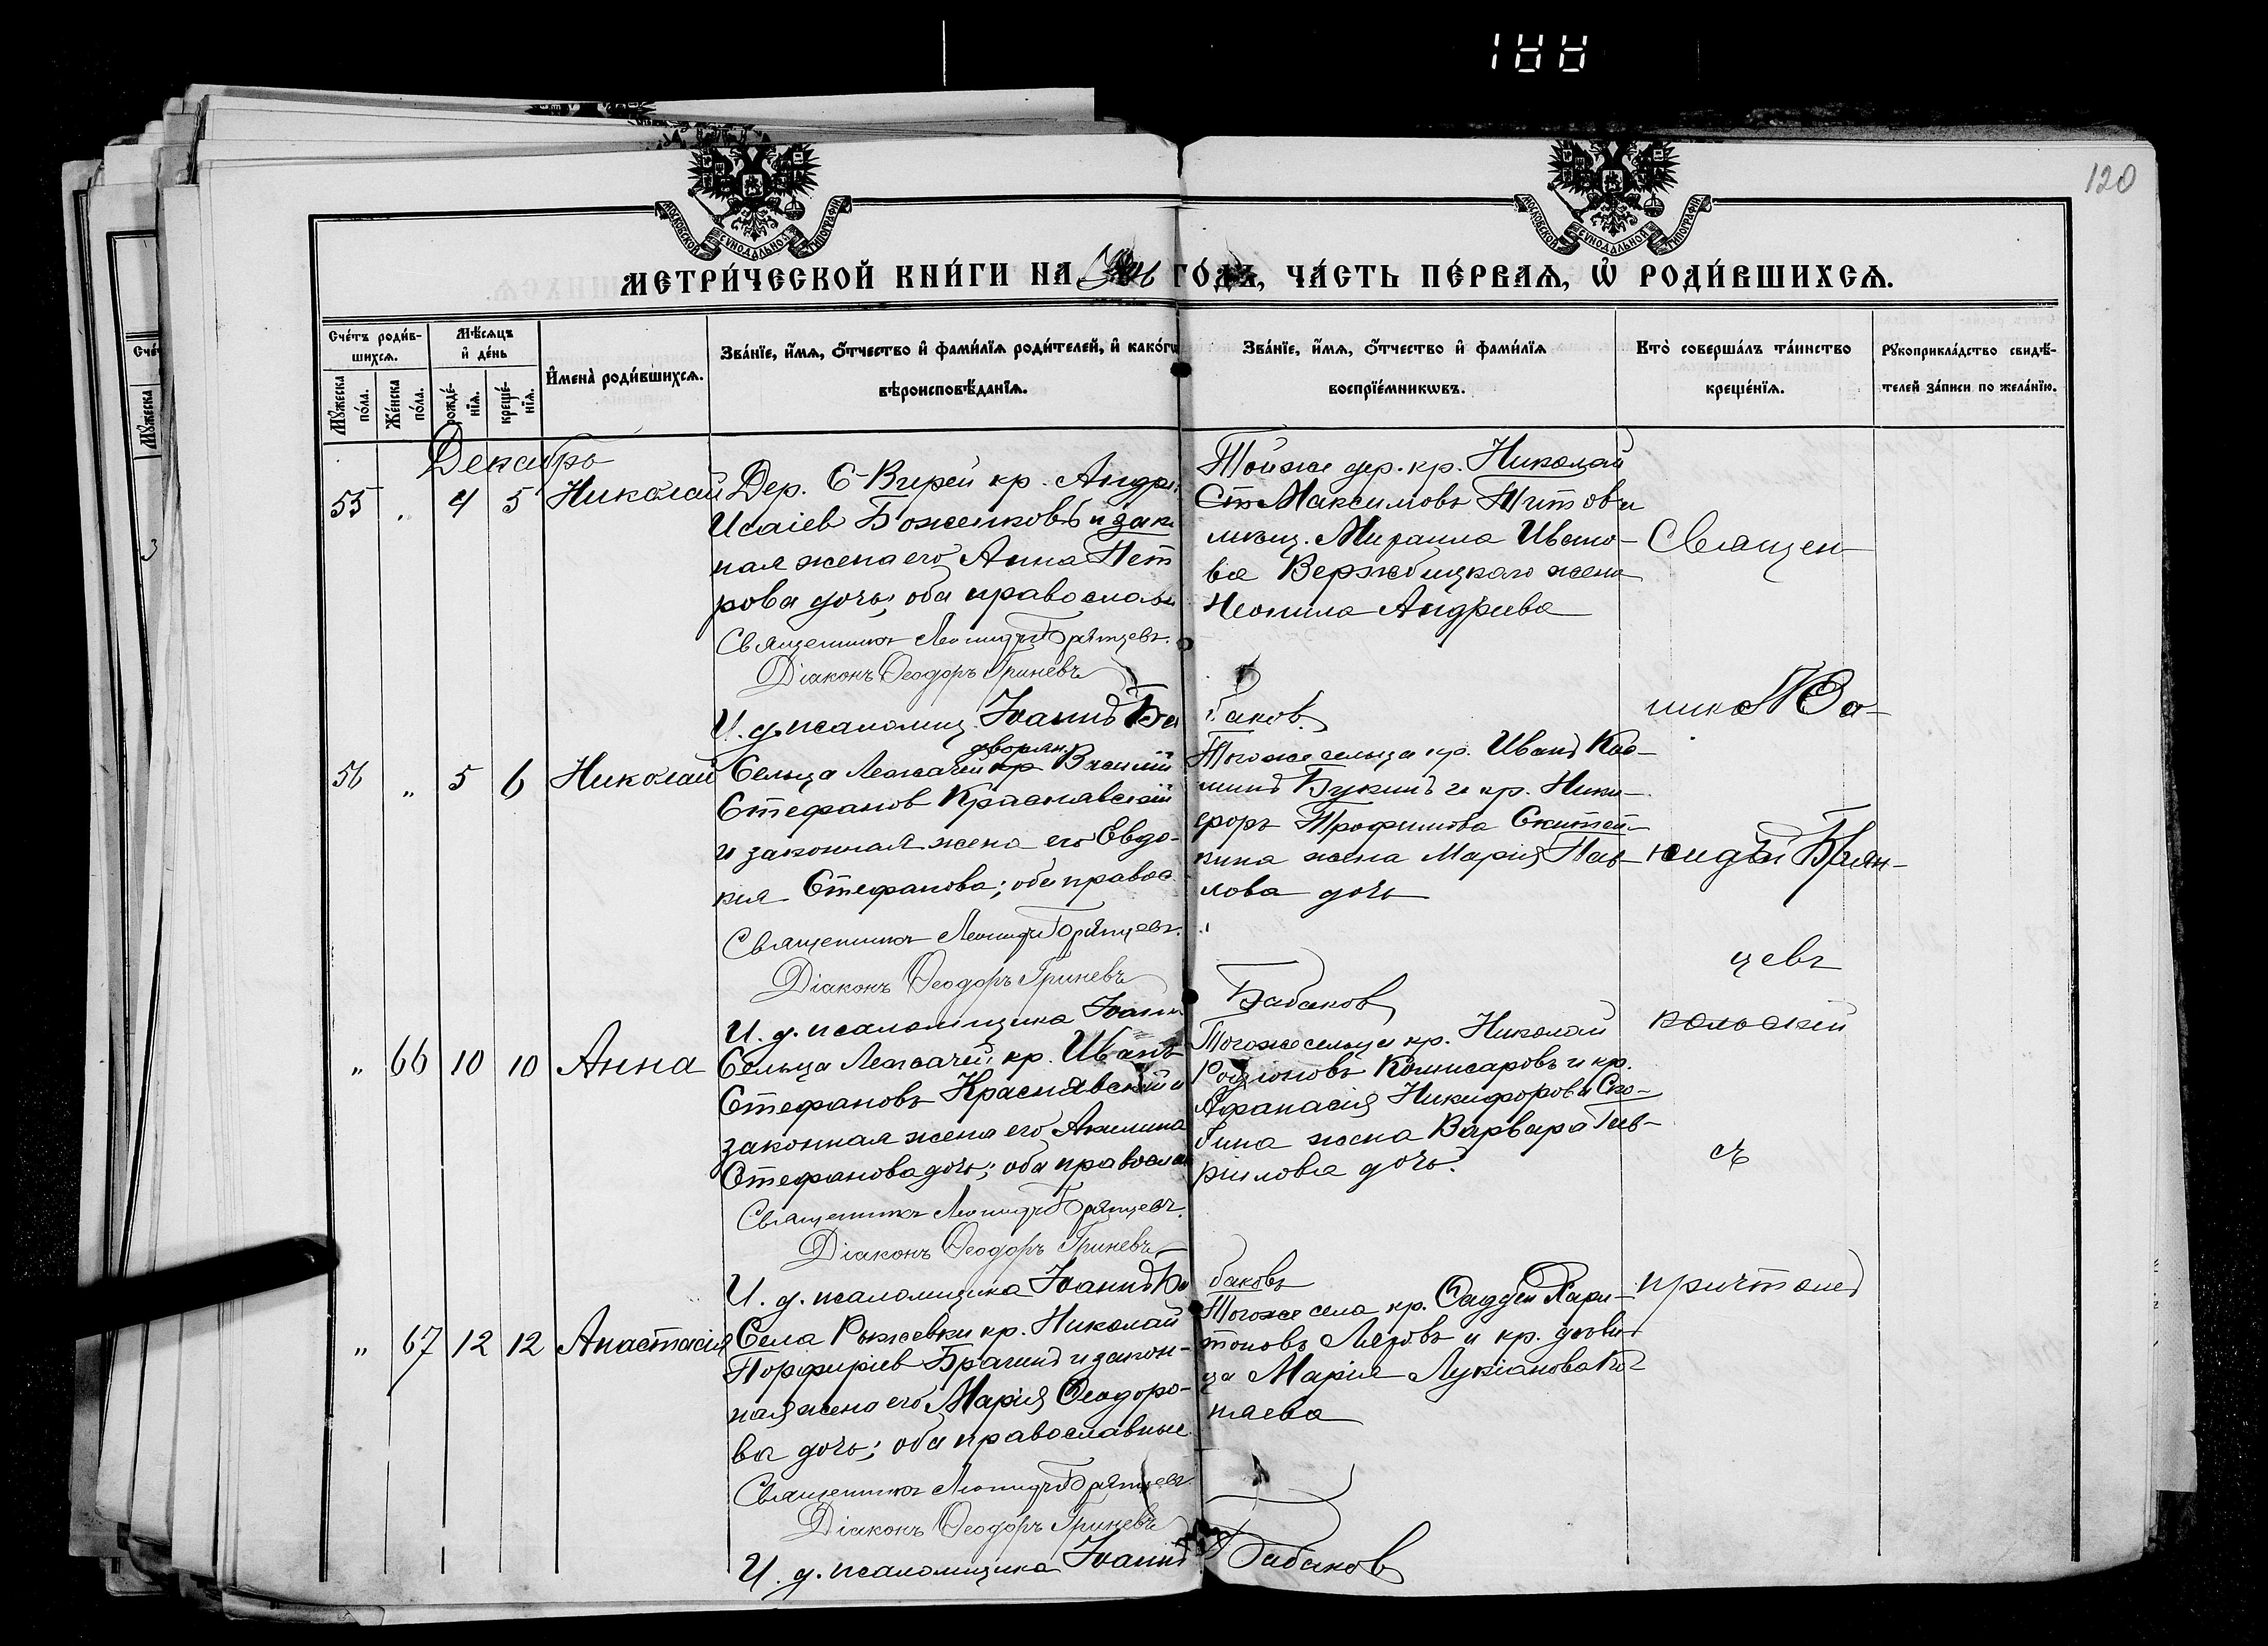 188
120
МОСКОВСКОЙ СѴНОДАЛЬНОЙ ТИПОГРАФІИ
МОСКОВСКОЙ СѴНОДАЛЬНОЙ ТИПОГРАФІИ
МЕТРИ́ЧЕСКОЙ КНИ́ГИ НА ГО́ДЪ, ЧА́СТЬ ПЕ́РВАѦ, Ѡ҆ РОДИ́ВШИХСѦ.
Сче́тъ роди́в-
шихсѧ.
Мꙋ́жеска по́ла.
Же́нска по́ла.
Мѣ́сѧцъ
и҆ де́нь
рожде́-
нїѧ.
креще́-
нїѧ.
И҆мена̀ роди́вшихсѧ.
Зва́нїе, и҆́мѧ, ѻ҆́тчество и҆ фами́лїѧ роди́телей, и҆ како́гѡ
вѣроисповѣ́данїѧ.
Зва́нїе, и҆́мѧ, ѻ҆́тчество и҆ фами́лїѧ
воспрїе́мникѡвъ.
Кто̀ соверша́лъ та́инство
креще́нїѧ.
Рꙋкоприкла́дство свидѣ́-
телей за́писи по жела́нїю.
Декабрь
55 „ 4 5 Николай
Дер. кр. Андре
Исаіев Боженковъ и зак
ная жена его Анна Пет
рова дочь; оба православ
Священникъ Леонидъ Брянцевъ.
Діаконъ Ѳеодоръ Гриневъ
И. д. псаломщ. Іоаннъ Ба
баков.
Тойже дер. кр. Николай
Максимовъ Титовъ и
мѣщ. Михаила Ивано-
ва Вержбицкаго жена
Неонила Андреева
56 „ 5 6 Николай
дворян.
Сельца Лежачей кр Василій
Стефанов Краснявскій
и законная жена его Евдо-
кія Стефанова; оба правос
Священникъ Леонидъ Брянцевъ.
Діаконъ Ѳеодоръ Гриневъ
И. д. псаломщика Іоанн
Бабаков
Тогоже сельца кр. Иванъ Коз-
минъ Букинъ и кр. Ники-
фора Трофимова
кина жена Марія Пав-
лова дочь
„ 66 10 10 Анна
Сельца Лежачей кр. Иванъ
Стефановъ Краснявскій и
законная жена его Акилина
Стефанова дочь; оба правосла
Священникъ Леонидъ Брянцевъ.
Діаконъ Ѳеодоръ Гриневъ
И. д. псаломщика Іоаннъ Ба
баковъ
Тогоже сельца кр. Николай
Родіоновъ Комисаровъ и кр.
Афанасія Никифорова Ско-
бина жена Варвара Гав-
риилова дочь.
„ 67 12 12 Анастасія
Села Рыжевки кр. Николай
Порфиріев Брагинъ и закон-
ная жена его Марія Ѳеодоро-
ва дочь; оба православные
Священникъ Леонидъ Брянцевъ
Діаконъ Ѳеодоръ Гриневъ
И. д. псаломщика Іоаннъ
Бабаков
Тогоже села кр. Фаддей Хари-
тоновъ и кр. дѣви-
ца Марія Лукіанова
Священ-
Брян-
цевъ
съ
причтомъ